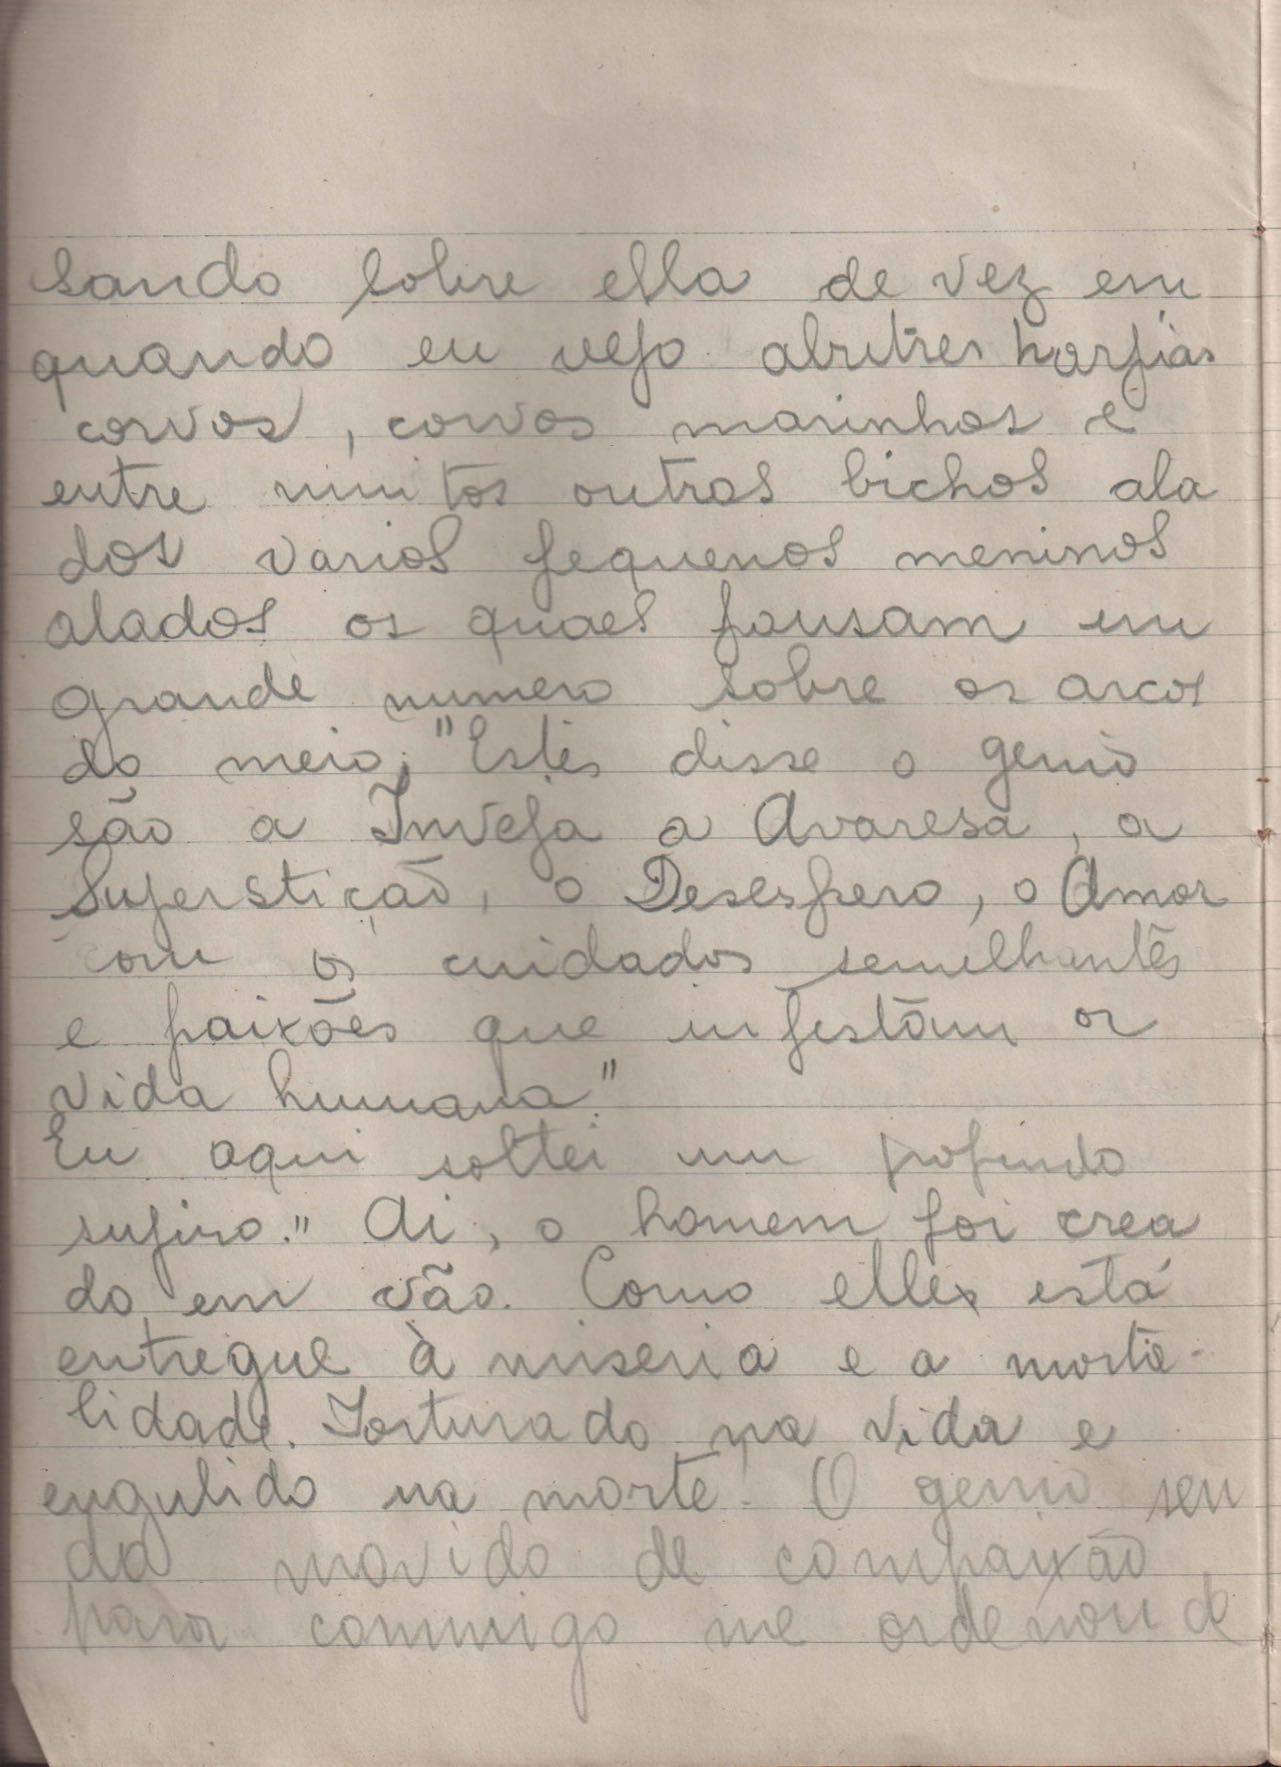 sando sobre ella de vez em
quando eu vejo abutres harpias
corvos, corvos marinhos e
entre muitos outros bichos ala
dos varios pequenos meninos
alados os quaes pousam em
grande numero sobre os arcos
do meio; "Estes disse o genio
são a Inveja a Avaresa, a
Superstição, o Desespero, o Amor
com os cuidados semelhantes
e paixões que infestam a
vida humana."
Eu aqui soltei um profundo
suspiro." Ai, o homem foi crea
do em vão. Como elles está
entregue à miseria e a morta-
lidade. Torturado na vida e
engulido na morte! O genio sen
do movido de compaixão
para commigo me ordenou de